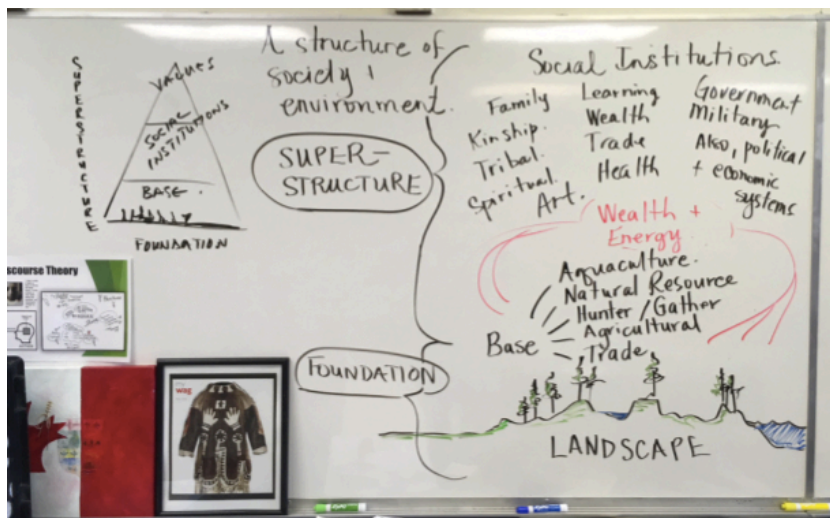 SUPERSTRUCTURE
VALUES
SOCIAL
INSTITUTIONS
BASE.
FOUNDATION
A structure of
society +
environment.
SUPER-
STRUCTURE
FOUNDATION
Social Institutions
Family
Kinship.
Tribal.
Spiritual.
Art.
Learning
Wealth
Trade
Health
Government
Military
Also, political
+ economic
systems
Wealth +
Energy
Base
Aquaculture.
Natural Resource
Hunter/Gather
Agricultural
Trade
LANDSCAPE
scourse Theory
wag